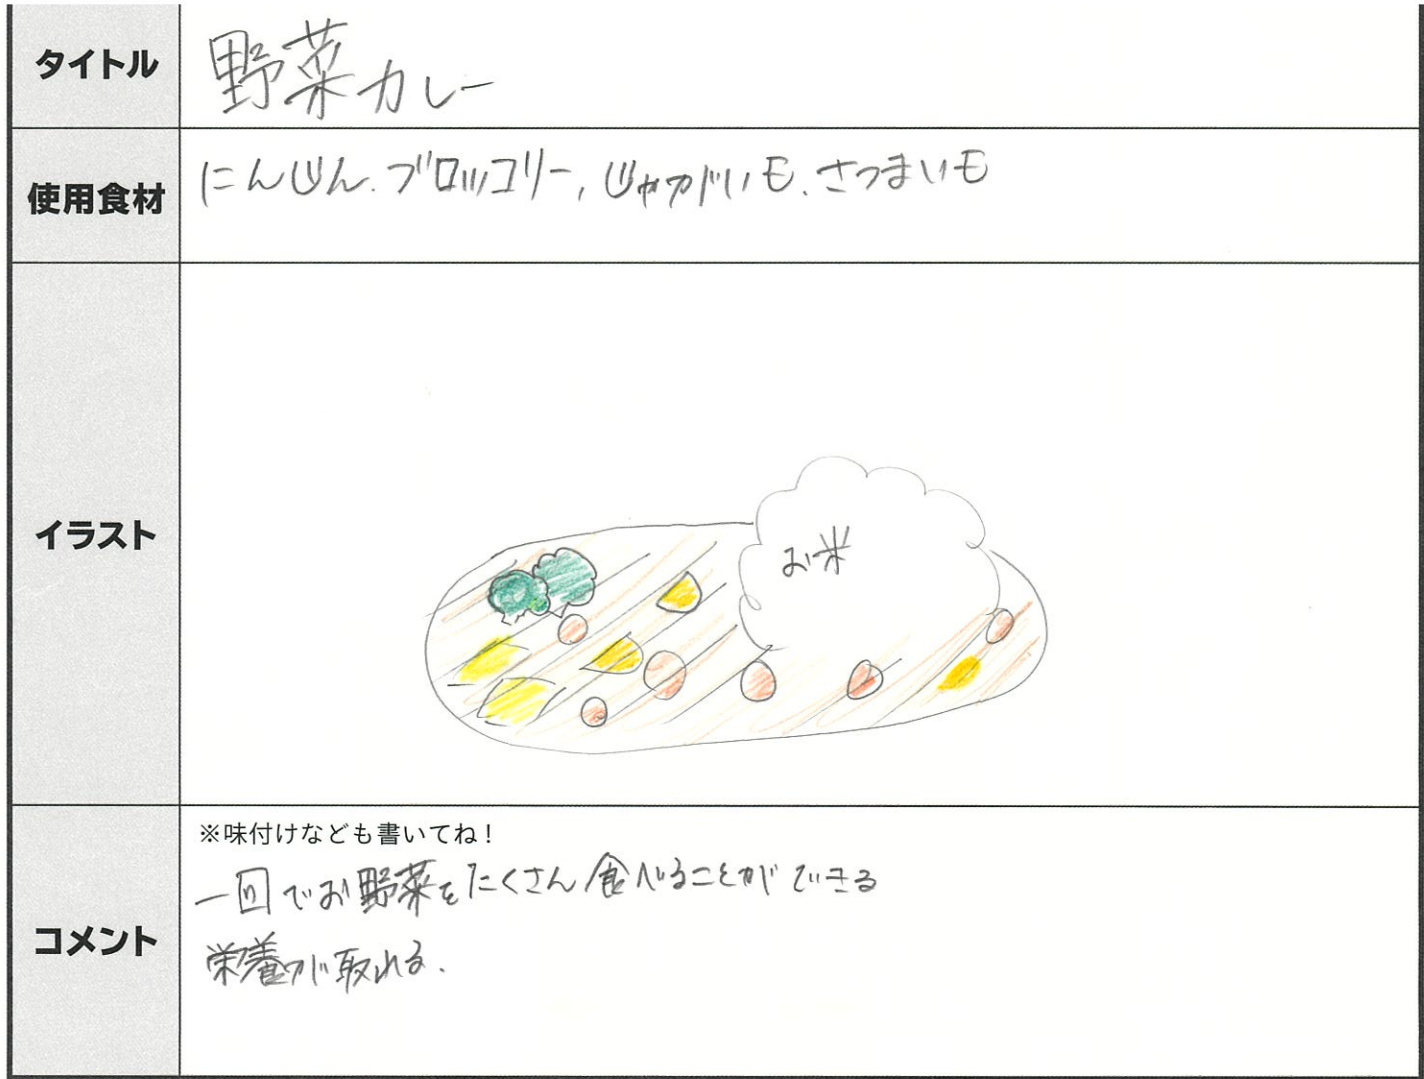 タイトル
野菜カレー
使用食材
にんじん、ブロッコリー、じゃがいも、さつまいも
イラスト
お米
コメント
※味付けなども書いてね!
一回でお野菜をたくさん食べることができる
栄養が取れる.